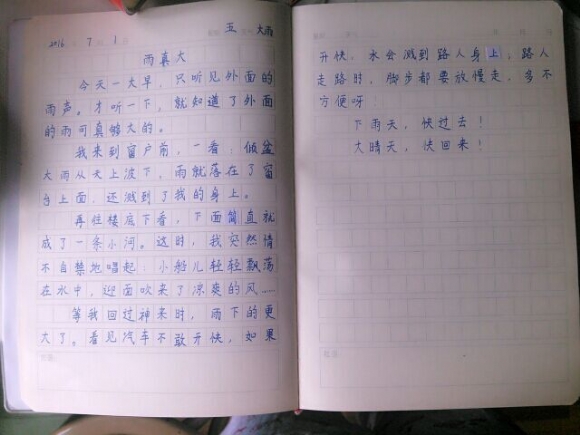 2016 7 1 五 大雨
雨真大
今天一大早，只听见外面的
雨声。才听一下，就知道了外面
的雨可真够大的。
我来到窗户前，一看：倾盆
大雨从天上泼下，雨就落在了窗
台上面，还溅到了我的身上。
再往楼底下看，下面简直就
成了一条小河。这时，我突然情
不自禁地唱起：小船儿轻轻飘荡
在水中，迎面吹来了凉爽的风……
等我回过神来时，雨下的更
大了。看见汽车不敢开快，如果
开快，水会溅到路人身上，路人
走路时，脚步都要放慢走，多不
方便呀！
下雨天，快过去！
大晴天，快回来！